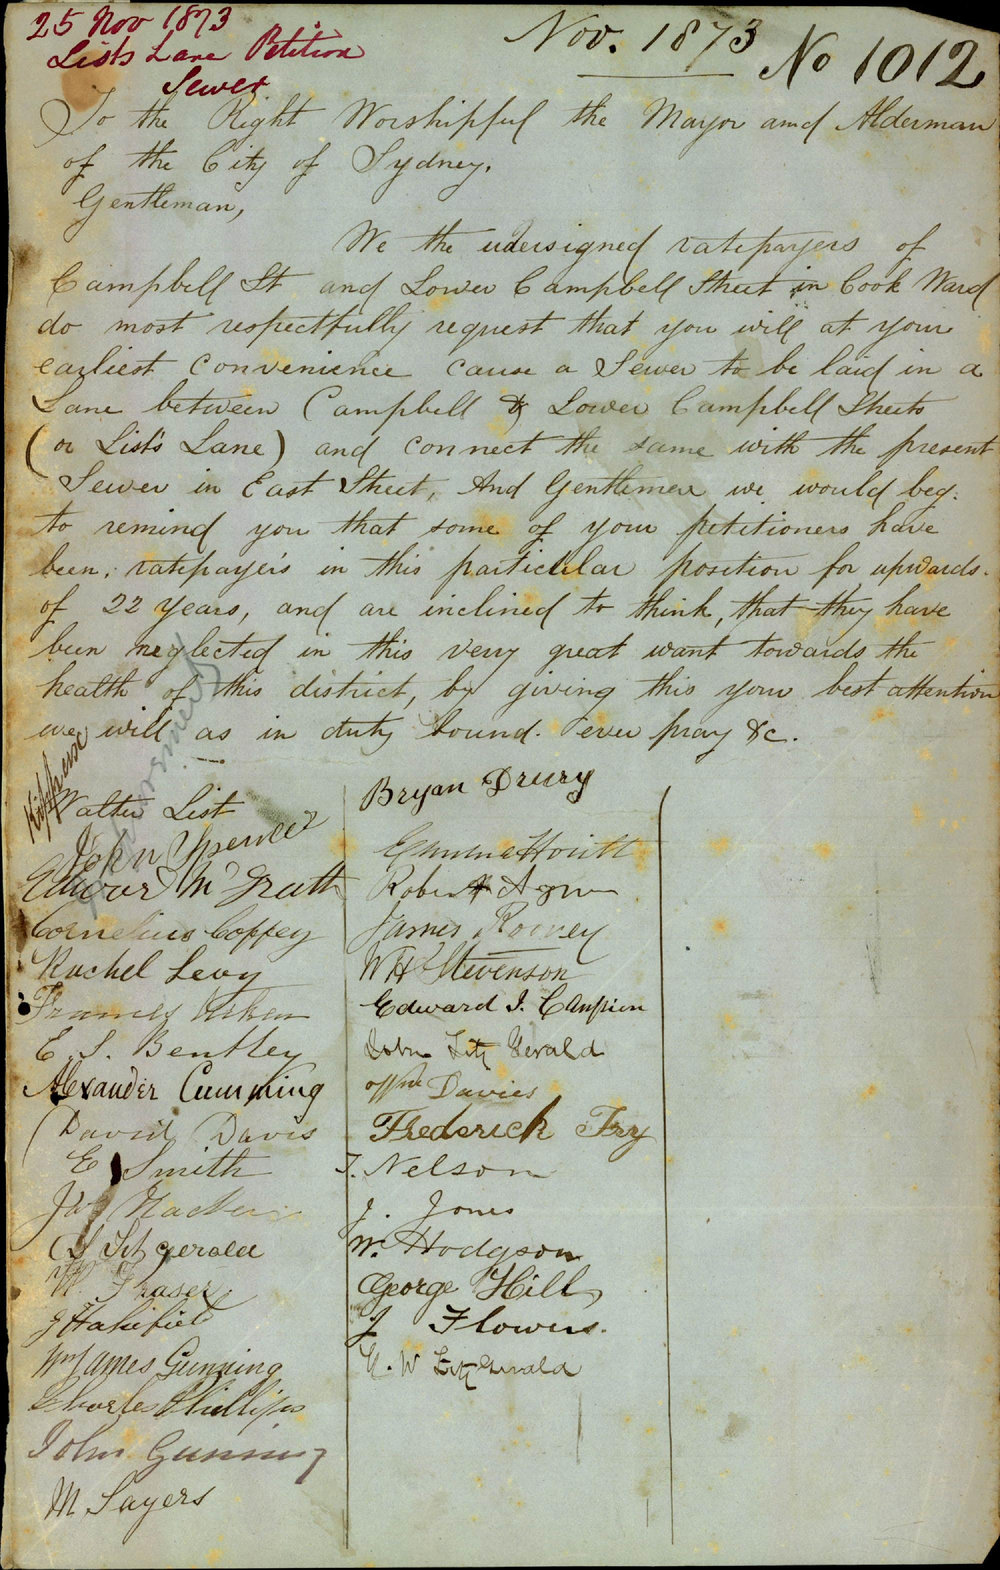 25 Nov 1873
Lists Lane Petition
Sewer
Nov. 1873
No 1012
To the Right Worshipful the Mayor and Alderman
of the City of Sydney.
Gentleman,
We the udersigned ratepayers of
Campbell St and Lower Campbell Street in Cook Ward
do most respectfully request that you will at your
earliest convenience cause a Sewer to be laid in a
Lane between Campbell & Lower Campbell Streets
(or List's Lane) and connect the same with the present
Sewer in East Street, And Gentlemen we would beg.
to remind you that some of your petitioners have
been, ratepayer's in this particular position for upwards.
of 22 years, and are inclined to think, that they have
been neglected in this very great want towards the
health of this district, by giving this your best attention
we will as in duty bound. ever pray &c.
Walter List
John Spencer
Edward McGrath
Cornelius Coffey
Rachel Levy
E. S. Bentley
Alexander Cumming
David Davis
E Smith
Fitzgerald
W. Fraser
Wm James Gunning
Charles Phillips
John Gunning
M Sayers
Bryan Drury
Robert
James Rooney
W H Stevenson
Edward J. Campion
John Fitz Gerald
Davies
Frederick Fry
T. Nelson
J. Jones
W. Hodgson
George Hill
J Flowers.
W FitzGerald